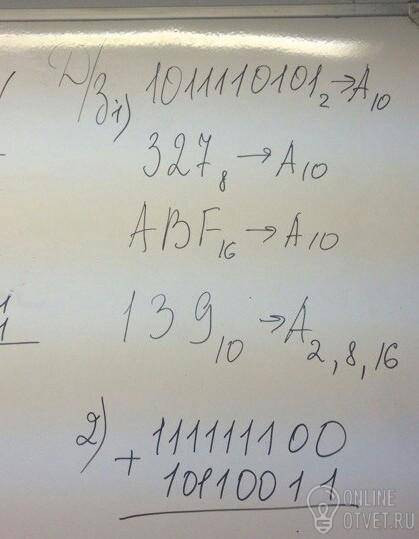 Д/З 1) 1011110101₂ → A₁₀
327₈ → A₁₀
ABF₁₆ → A₁₀
1
1
139₁₀ → A₂,₈,₁₆
2) 111111100
+ 10110011
ONLINE
OTVET.RU